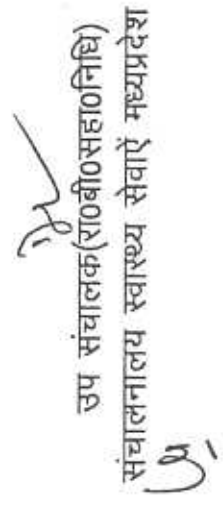 उप संचालक(रा०बी०सहा०निधि)
संचालनालय स्वास्थ्य सेवाऐं मध्यप्रदेश